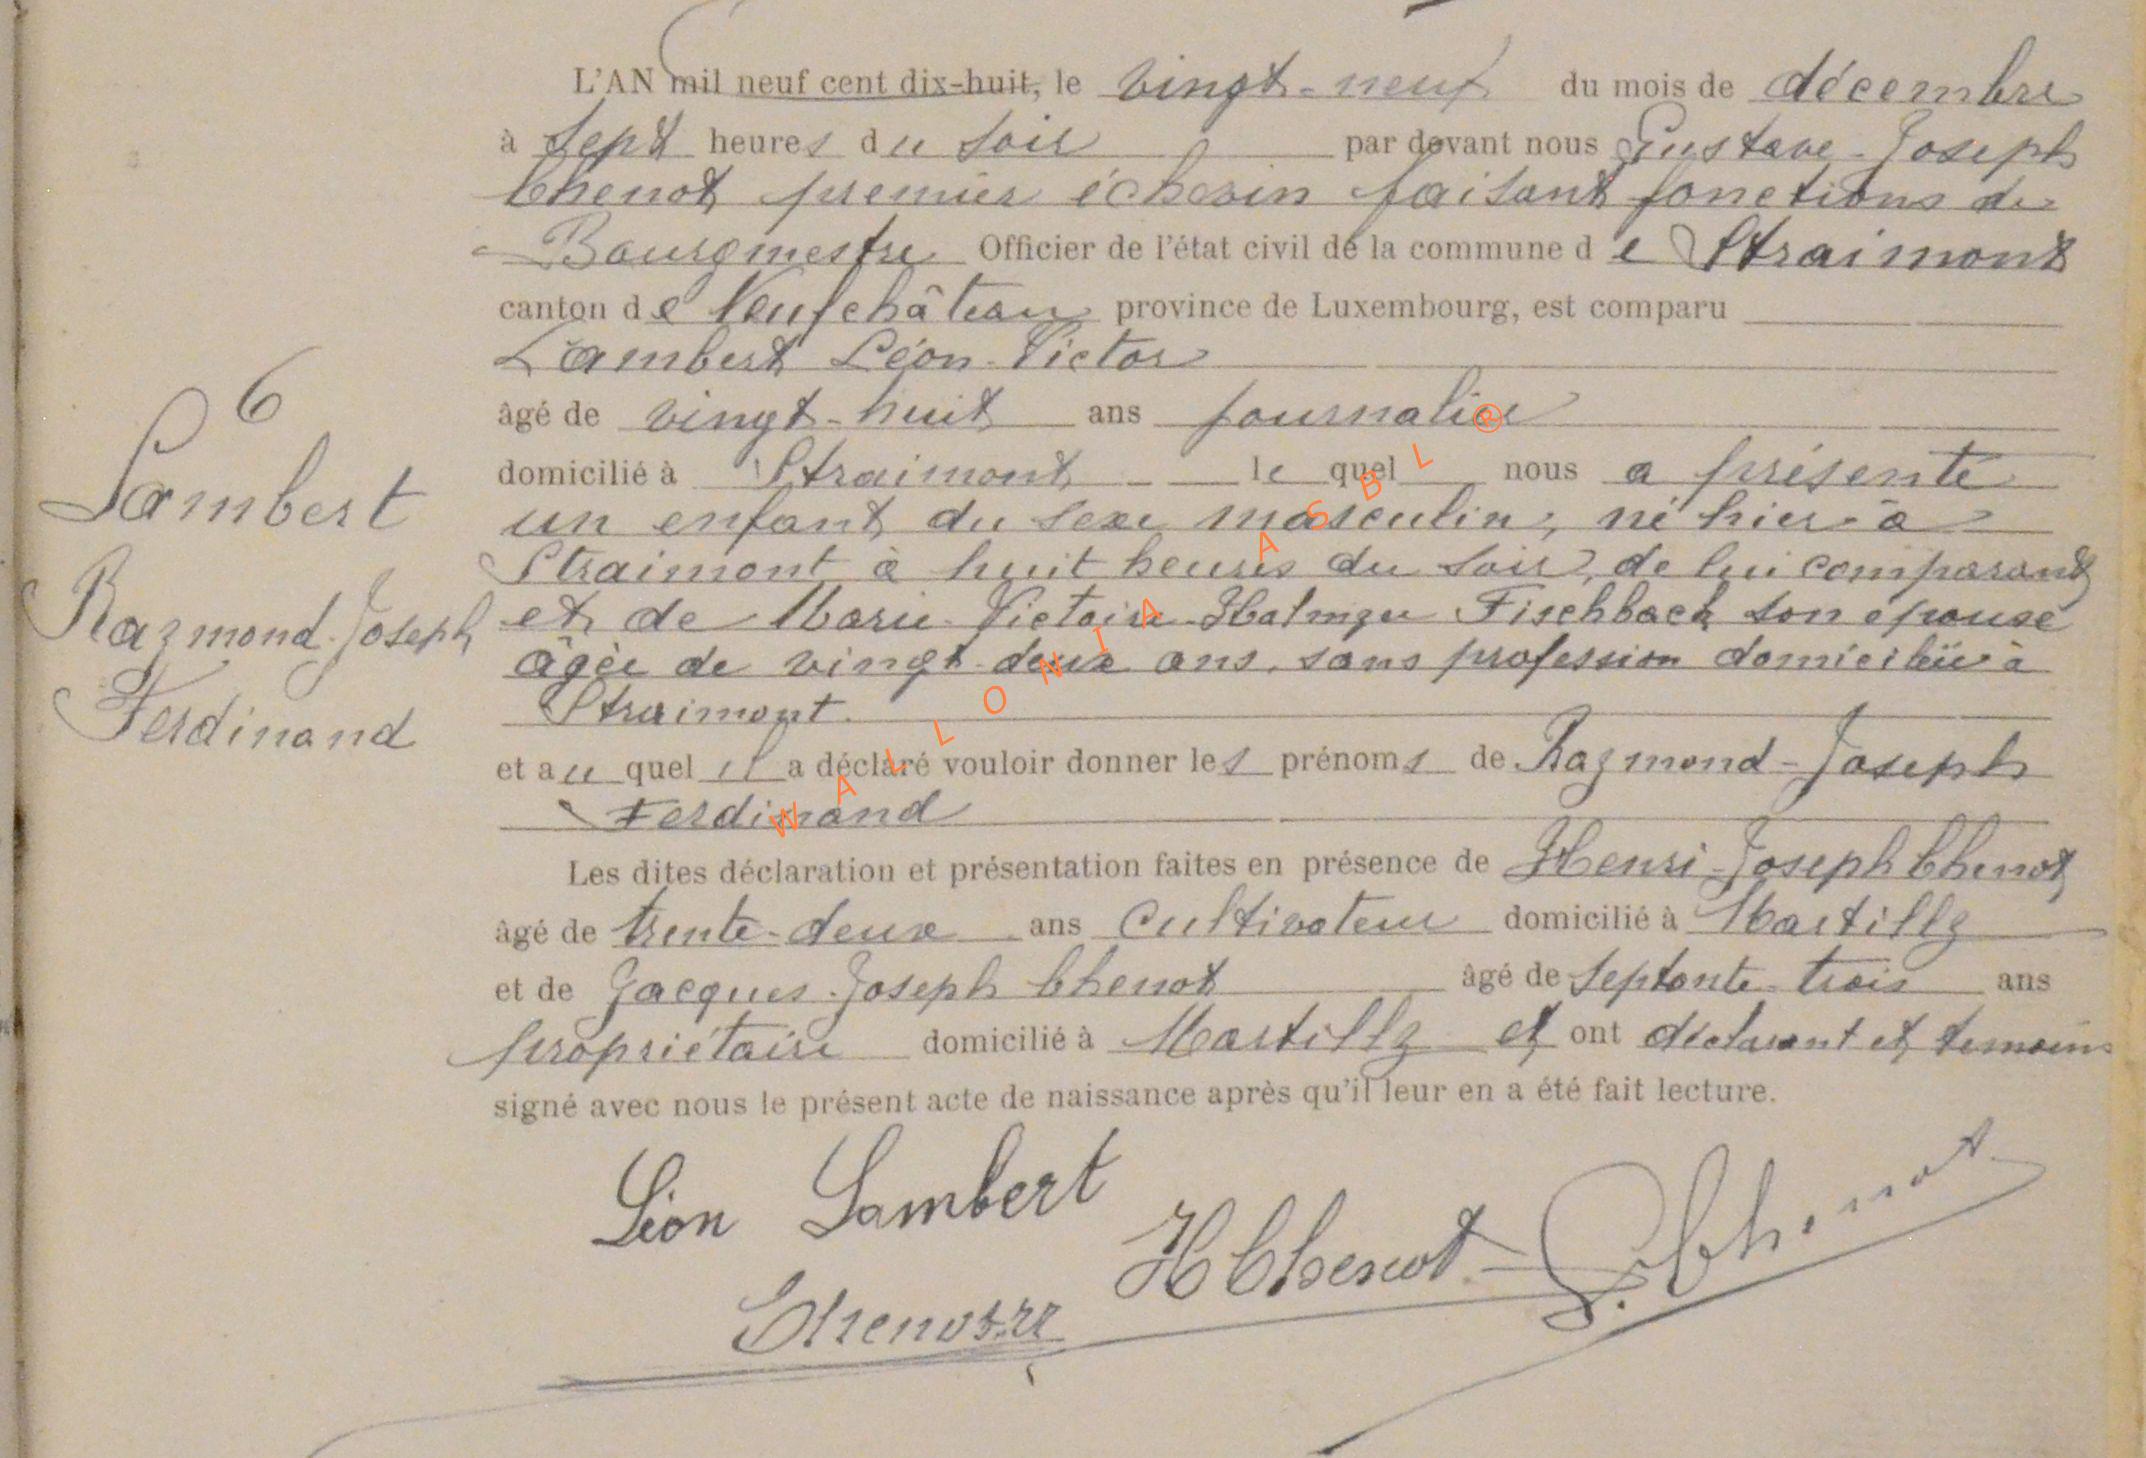 L'AN mil neuf cent dix-huit, le vingt-neuf du mois de décembre
à sept heures du soir par devant nous Gustave-Joseph
Chenot premier échevin faisant fonctions de
Bourgmestre Officier de l'état civil de la commune de Straimont
canton de Neufchâteau province de Luxembourg, est comparu
Lambert Léon-Victor
âgé de vingt-huit ans journalier
domicilié à Straimont le quel nous a présenté
un enfant du sexe masculin, né hier à
Straimont à huit heures du soir, de lui comparant
et de Marie-Victoire Fischbach son épouse
âgée de vingt-deux ans, sans profession domiciliée à
Straimont.
et au quel il a déclaré vouloir donner les prénoms de Raymond-Joseph
Ferdinand
Les dites déclaration et présentation faites en présence de Henri-Joseph Chenot
âgé de trente-deux ans cultivateur domicilié à Martilly
et de Jacques-Joseph Chenot âgé de septante-trois ans
propriétaire domicilié à Martilly et ont déclarant et temoins
signé avec nous le présent acte de naissance après qu'il leur en a été fait lecture.
Léon Lambert
H Chenot
G. Chenot
Chenot
6
Lambert
Raymond-Joseph
Ferdinand
WALLONIA ASBL ®